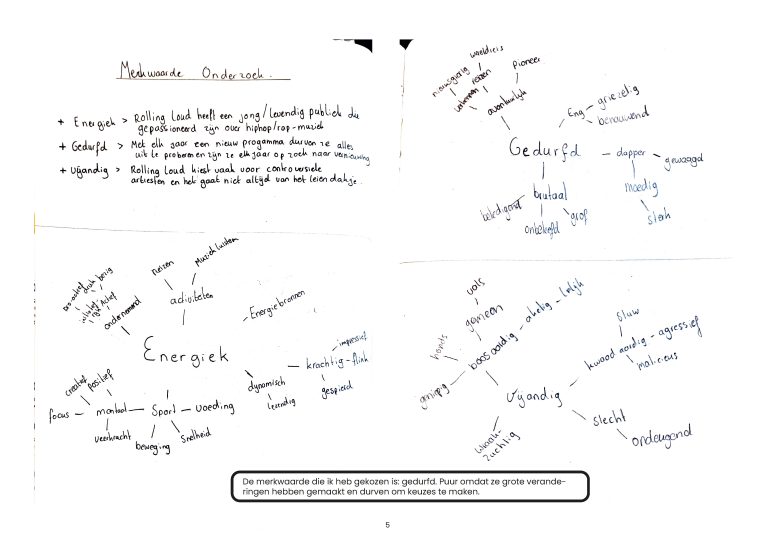 Merkwaarde Onderzoek.
+ Energiek > Rolling Loud heeft een jong/levendig publiek die
gepassioneerd zijn over hiphop/rap-muziek
+ Gedurfd > Met elk jaar een nieuw progamma durven ze alles
uit te proberen zijn ze elk jaar op zoek naar vernieuwing
+ Vijandig > Rolling Loud kiest vaak voor controversiele
artiesten en het gaat niet altijd van het leien dakje.
wereldreis
nieuwsgierig
reizen
Pioneer
avontuurlijk
Eng
griezelig
benauwend
Gedurfd
dapper
gewaagd
moedig
sterk
brutaal
beledigend
onbeleefd
grof
reizen
Muziek luisteren
pro-actief
druk
bezig
Actief
ondernemend
activiteiten
Energiebronnen
Energiek
impressief
krachtig - flink
gespierd
dynamisch
levendig
creatief
positief
focus
mentaal
Sport
voeding
veerkracht
beweging
Snelheid
vals
gemeen
boosaardig
akelig
lelijk
honds
Vijandig
sluw
kwaadaardig - agressief
malicieus
slecht
ondeugend
wraak-
zuchtig
De merkwaarde die ik heb gekozen is: gedurfd. Puur omdat ze grote verande-
ringen hebben gemaakt en durven om keuzes te maken.
5